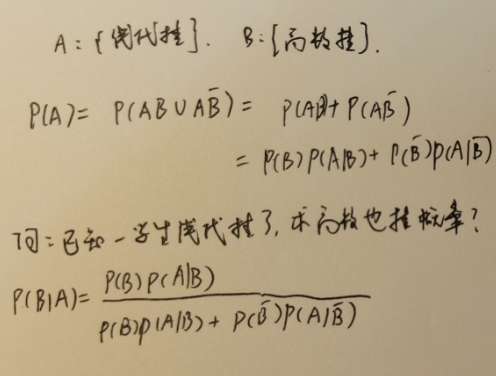 A：{线代挂}. B：{高数挂}.
P(A)= P(AB∪AB̄)= P(AB)+P(AB̄)
= P(B)P(A|B)+P(B̄)P(A|B̄)
问：已知一学生线代挂了，求高数也挂概率？
P(B|A)= P(B)P(A|B)
P(B)P(A|B)+ P(B̄)P(A|B̄)